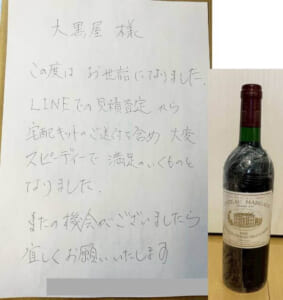 大黒屋 様
この度は お世話になりました.
LINEでの見積査定 から
宅配キットのご送付も含め 大変
スピーディーで 満足のいくものと
なりました.
またの機会がございましたら
宜しくお願いいたします
CHATEAU MARGAUX